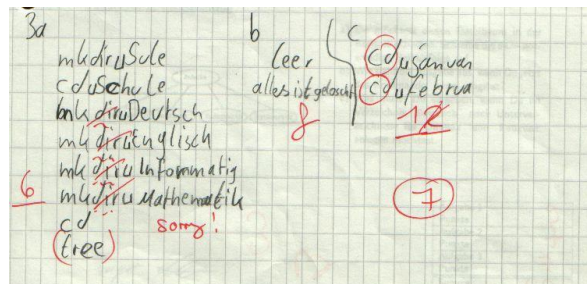 3a
mkdiruSule
cduSchule
mkdiruDeutsch
mkdiruEnglisch
mkdiruInformatig
6 mkdiruMathematik
cd sorry!
(tree)
b
leer
alles ist gelöscht
8
c
cdujanuar
cdufebrua
12
7